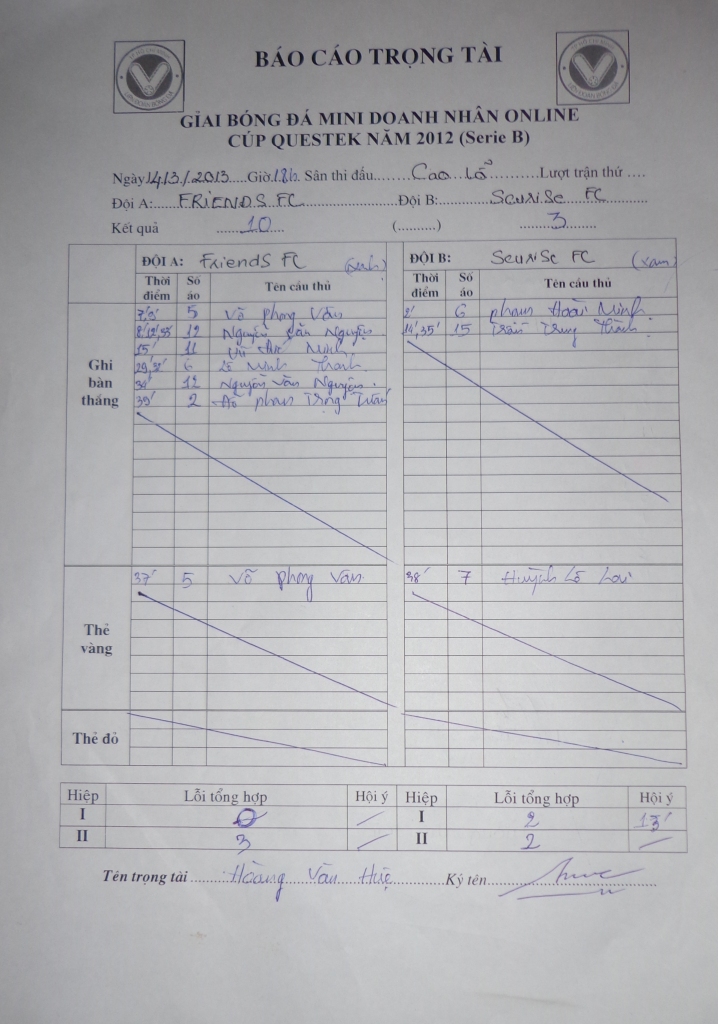 BÁO CÁO TRỌNG TÀI
GIẢI BÓNG ĐÁ MINI DOANH NHÂN ONLINE
CÚP QUESTEK NĂM 2012 (Serie B)
Ngày 14/3/2013 Giờ 18h. Sân thi đấu Cao Lỗ Lượt trận thứ ....
Đội A: FRIENDS FC Đội B: SCUNISC FC
Kết quả 10 (..........) 3
ĐỘI A: FriendS FC (xanh) ĐỘI B: ScuniSc FC (xam)
Thời điểm Số áo Tên cầu thủ Thời điểm Số áo Tên cầu thủ
Ghi bàn thắng
5 Võ phong Vân 2' 6 phạm Hoài Minh
12 Nguyễn Văn Nguyên 14', 35' 15 Trần Trung Thành
15' 11 Minh
29', 6 Lê Minh Thanh
12 Nguyễn Văn Nguyên
39' 2 Đỗ phan Trọng Tuấn
Thẻ vàng
37' 5 Võ phong Vân 38' 7 Huỳnh
Thẻ đỏ
Hiệp Lỗi tổng hợp Hội ý Hiệp Lỗi tổng hợp Hội ý
I 0 / I 2 13'
II 3 / II 2 /
Tên trọng tài Hoàng Văn Huệ Ký tên